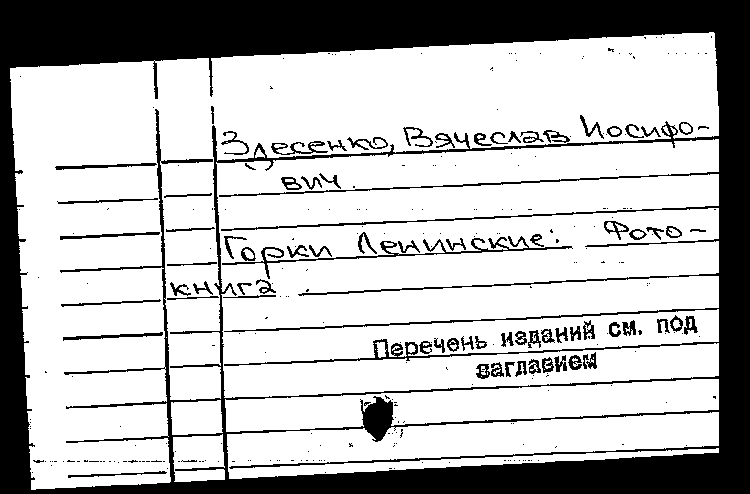 Злесенко, Вячеслав Иосифо-
вич.
Горки Ленинские: Фото-
книга.
Перечень изданий см. под
заглавием